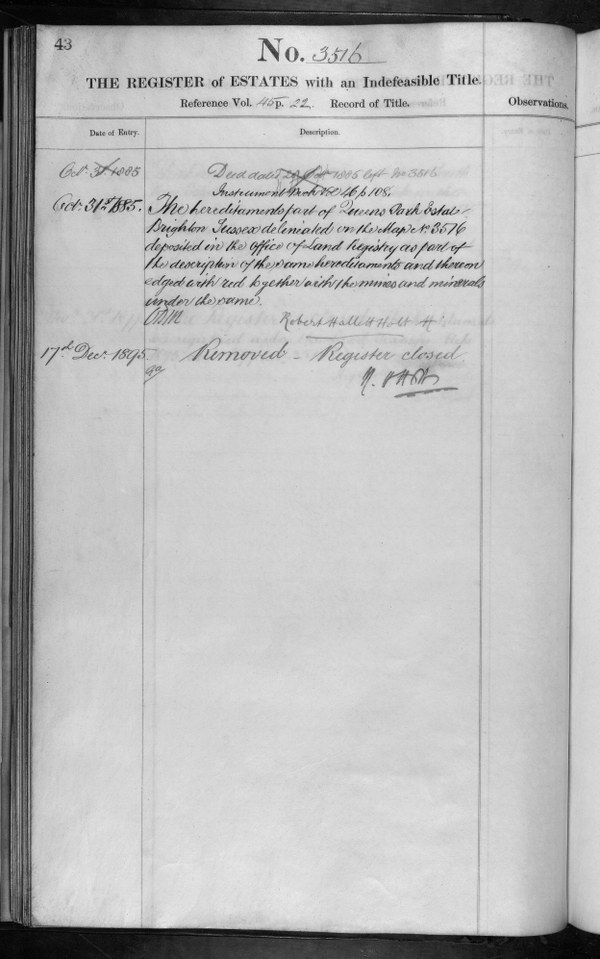 43
No. 3516
THE REGISTER of ESTATES with an Indefeasible Title.
Reference Vol. 45 p. 22. Record of Title.
Observations.
Date of Entry.
Description.
Oct. 31 1885
Deed dated 1885 3516
Instrument Book Vol 46 p 108.
Oct. 31st 1885.
The hereditaments part of Queens Park Estate
Brighton Sussex deliniated on the Map No 3516
deposited in the office of Land Registry as part of
the description of the same hereditaments and thereon
edged with red together with the mines and minerals
under the same.
Robert Hall Holt
17th Decr. 1895.
Removed – Register closed.